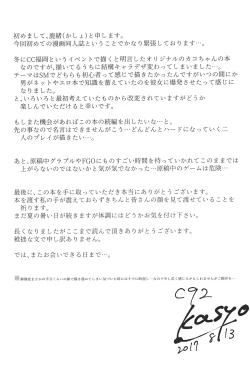 初めまして、鹿緒(かしょ)と申します。
今回初めての漫画同人誌ということでかなり緊張しております…。
冬にCC福岡というイベントで描くと明言したオリジナルのカコちゃんの本
なのですが、描いてるうちに結構キャラデザ変わってしまいました…。
テーマはSMでどちらも初心者って感じで描きたかったんですがいつの間にか
男がネットやエロ本で知識を蓄えていたのを彼女に爆発させたって感じに
なりました。
と、いろいろと最初考えていたものから改変されていますがどうか
楽しんでいただけると幸いです。
もしまた機会があればこの本の続編を出したいな…と。
先の事なので名言はできませんがこう…どんどんとハードになっていく二
人のプレイが描きたい…。
あと、原稿中グラブルやFGOにものすごい時間を持っていかれてこのままでは
上がらないのではないかと気が気でなかった…原稿中のゲームは危険…
最後に、この本を手に取っていただき本当にありがとうございます。
本を渡す私の手が震えておらずきちんと皆さんの顔を見て渡せていることを
祈ります。
まだ夏の暑い日が続きますが体調にはどうかお気を付け下さい。
長くなりましたがここまで読んで頂きありがとうございます。
稚拙な文で申し訳ありません。
では、またお会いできる日まで…。
C92
kasyo
2017 8/13